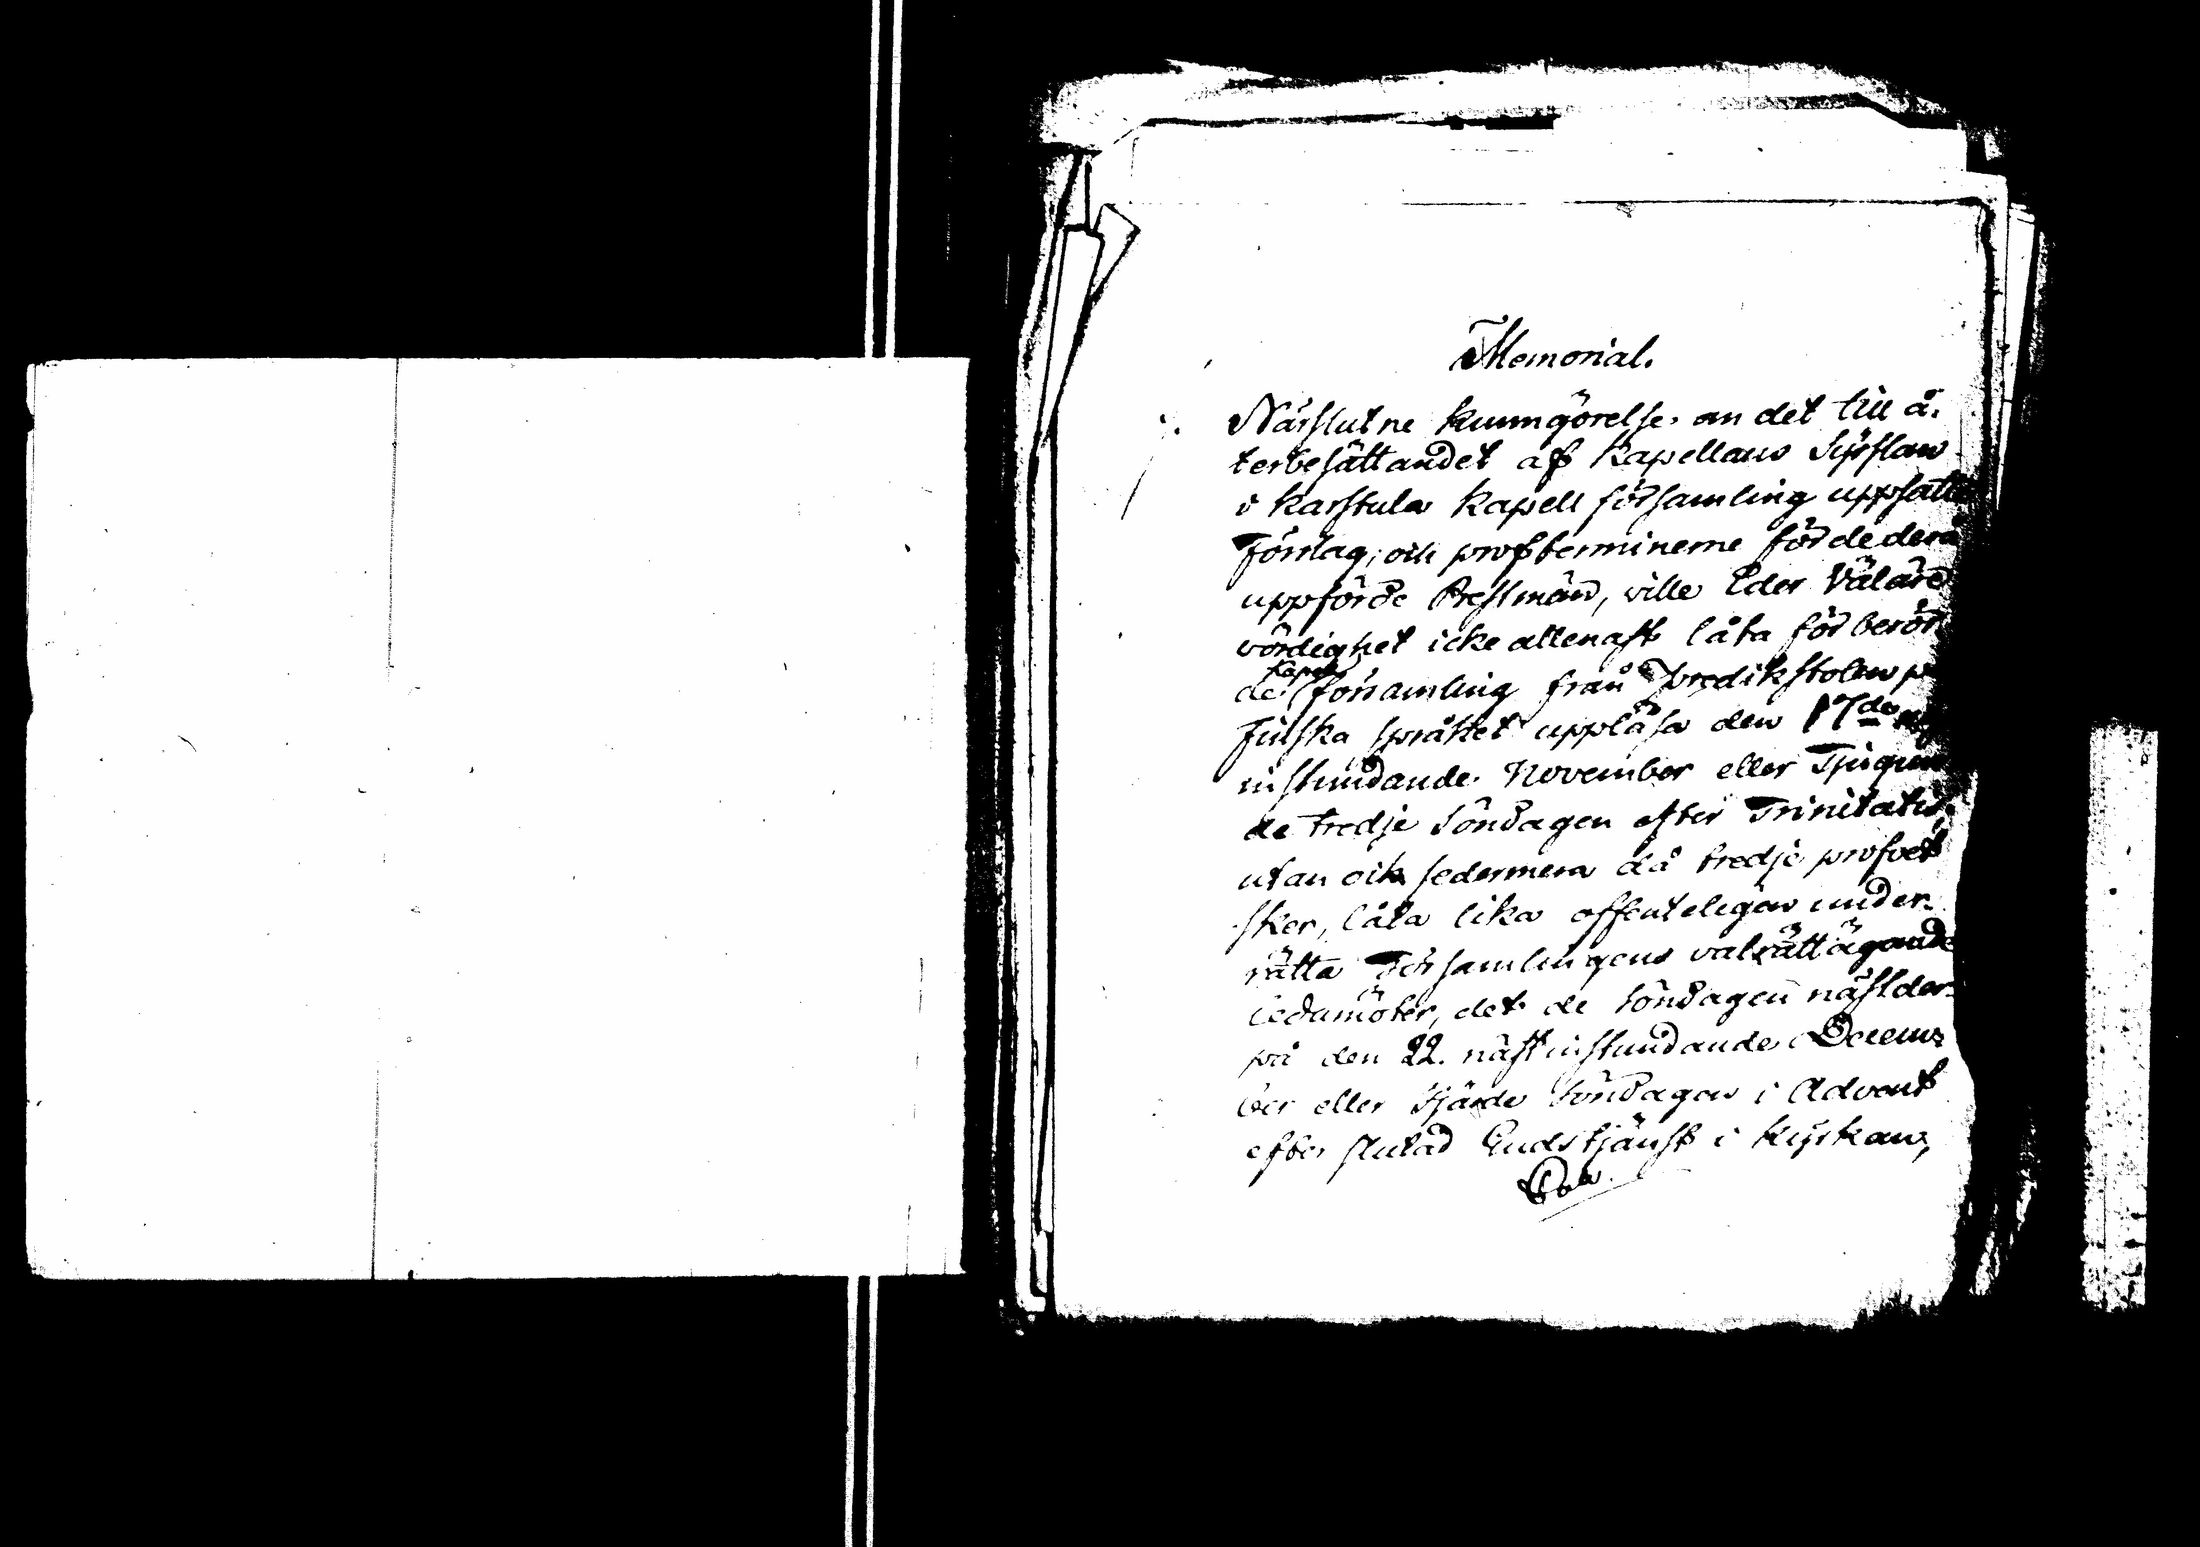 Memorial.
Närslutne kunngörelse om det till å-
terbesättandet af Kapellans Sysslan
i Karstula Kapell församling uppsatte
Förslag, och profterminerne för de derå
uppförde Prestmän, ville Eder Välära
vördighet icke allenast låta för berör-
de Kapell församling från Predikstolen på
Finska språket uppläsa den 17de
instundande November eller Tjugon
de tredje Söndagen efter Trinitatis,
utan ock sedermera då tredje profvet
sker, låta lika offenteligen under-
rätta Församlingens valrättägande
Ledamöter, det de Söndagen näst der-
på den 22. nästinstundande Decem-
ber eller Fjärde Söndagen i Advent
efter slutad Gudstjänst i Kyrkan,